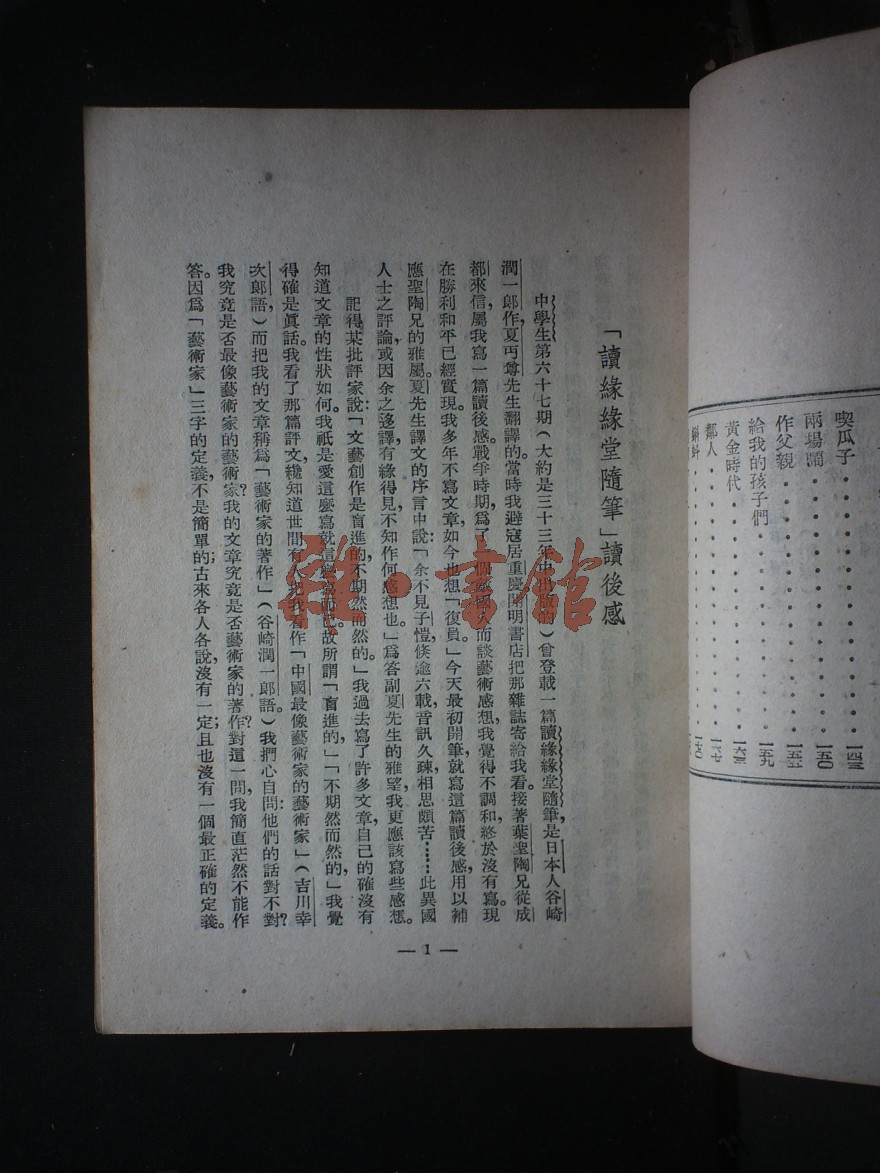 喫瓜子
一四三
兩場鬧
一五〇
作父親
一五五
給我的孩子們
一五九
黃金時代
一六三
鄰人
一六七
蝌蚪
一七〇
「讀緣緣堂隨筆」讀後感
中學生第六十七期（大約是三十三年中出版的）曾登載一篇讀緣緣堂隨筆，是日本人谷崎
潤一郎作，夏丏尊先生翻譯的。當時我避寇居重慶開明書店把那雜誌寄給我看。接著葉聖陶兄從成
都來信，屬我寫一篇讀後感。戰爭時期，爲了一個敵國人而談藝術感想，我覺得不調和，終於沒有寫。現
在勝利和平已經實現。我多年不寫文章，如今也想「復員」。今天最初開筆，就寫這篇讀後感，用以補
應聖陶兄的雅屬。夏先生譯文的序言中說：「余不見子愷，倏逾六載，音訊久疎，相思頗苦……此異國
人士之評論，或因余之迻譯，有緣得見，不知作何感想也。」爲答副夏先生的雅望，我更應該寫些感想。
記得某批評家說：「文藝創作是盲進的，不期然而然的。」我過去寫了許多文章，自己的確沒有
知道文章的性狀如何。我祇是愛這麼寫就這麼寫而已。故所謂「盲進的」，「不期然而然的，」我覺
得確是眞話。我看了那篇評文，纔知道世間有人把我看作「中國最像藝術家的藝術家」（吉川幸
次郎語），而把我的文章稱爲「藝術家的著作」（谷崎潤一郎語）。我捫心自問：他們的話對不對？
我究竟是否最像藝術家的藝術家？我的文章究竟是否藝術家的著作？對這一問，我簡直茫然不能作
答。因爲「藝術家」三字的定義，不是簡單的；古來各人各說，沒有一定；且也沒有一個最正確的定義。
— 1 —
雜·書館